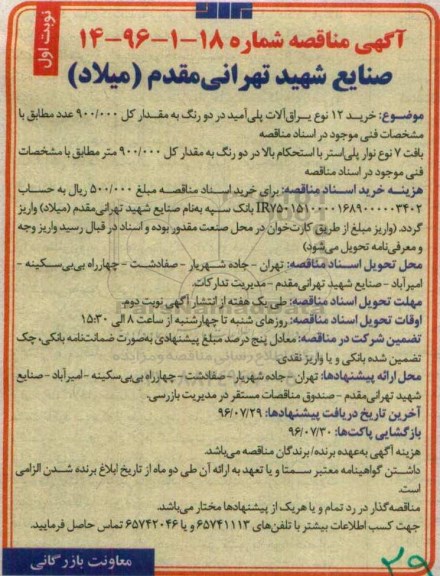 نوبت اول
آگهی مناقصه شماره ۱۸-۱-۹۶-۱۴
صنایع شهید تهرانی‌مقدم (میلاد)
موضوع: خرید ۱۲ نوع یراق‌آلات پلی‌آمید در دو رنگ به مقدار کل ۹۰۰/۰۰۰ عدد مطابق با
مشخصات فنی موجود در اسناد مناقصه
بافت ۷ نوع نوار پلی‌استر با استحکام بالا در دو رنگ به مقدار کل ۹۰۰/۰۰۰ متر مطابق با مشخصات
فنی موجود در اسناد مناقصه
هزینه خرید اسناد مناقصه: برای خرید اسناد مناقصه مبلغ ۵۰۰/۰۰۰ ریال به حساب
بانک سپه به‌نام صنایع شهید تهرانی‌مقدم (میلاد) واریز
گردد. (واریز مبلغ از طریق کارت‌خوان در محل صنعت مقدور بوده و اسناد در قبال رسید واریز وجه
و معرفی‌نامه تحویل می‌شود)
محل تحویل اسناد مناقصه: تهران - جاده شهریار - صفادشت - چهارراه بی‌بی‌سکینه -
امیرآباد - صنایع شهید تهرانی‌مقدم - مدیریت تدارکات.
مهلت تحویل اسناد مناقصه: طی یک هفته از انتشار آگهی نوبت دوم.
اوقات تحویل اسناد مناقصه: روزهای شنبه تا چهارشنبه از ساعت ۸ الی ۱۵:۳۰
تضمین شرکت در مناقصه: معادل پنج درصد مبلغ پیشنهادی به‌صورت ضمانت‌نامه بانکی، چک
تضمین شده بانکی و یا واریز نقدی.
محل ارائه پیشنهادها: تهران - جاده شهریار - صفادشت - چهارراه بی‌بی‌سکینه - امیرآباد - صنایع
شهید تهرانی‌مقدم - صندوق مناقصات مستقر در مدیریت بازرسی.
آخرین تاریخ دریافت پیشنهادها: ۹۶/۰۷/۲۹
بازگشایی پاکت‌ها: ۹۶/۰۷/۳۰
هزینه آگهی به‌عهده برنده/برندگان مناقصه می‌باشد.
داشتن گواهینامه معتبر سمتا و یا تعهد به ارائه آن طی دو ماه از تاریخ ابلاغ برنده شدن الزامی
است.
مناقصه‌گذار در رد تمام و یا هریک از پیشنهادها مختار می‌باشد.
جهت کسب اطلاعات بیشتر با تلفن‌های ۶۵۷۴۱۱۱۳ و یا ۶۵۷۴۲۰۴۶ تماس حاصل فرمایید.
معاونت بازرگانی
۲۹